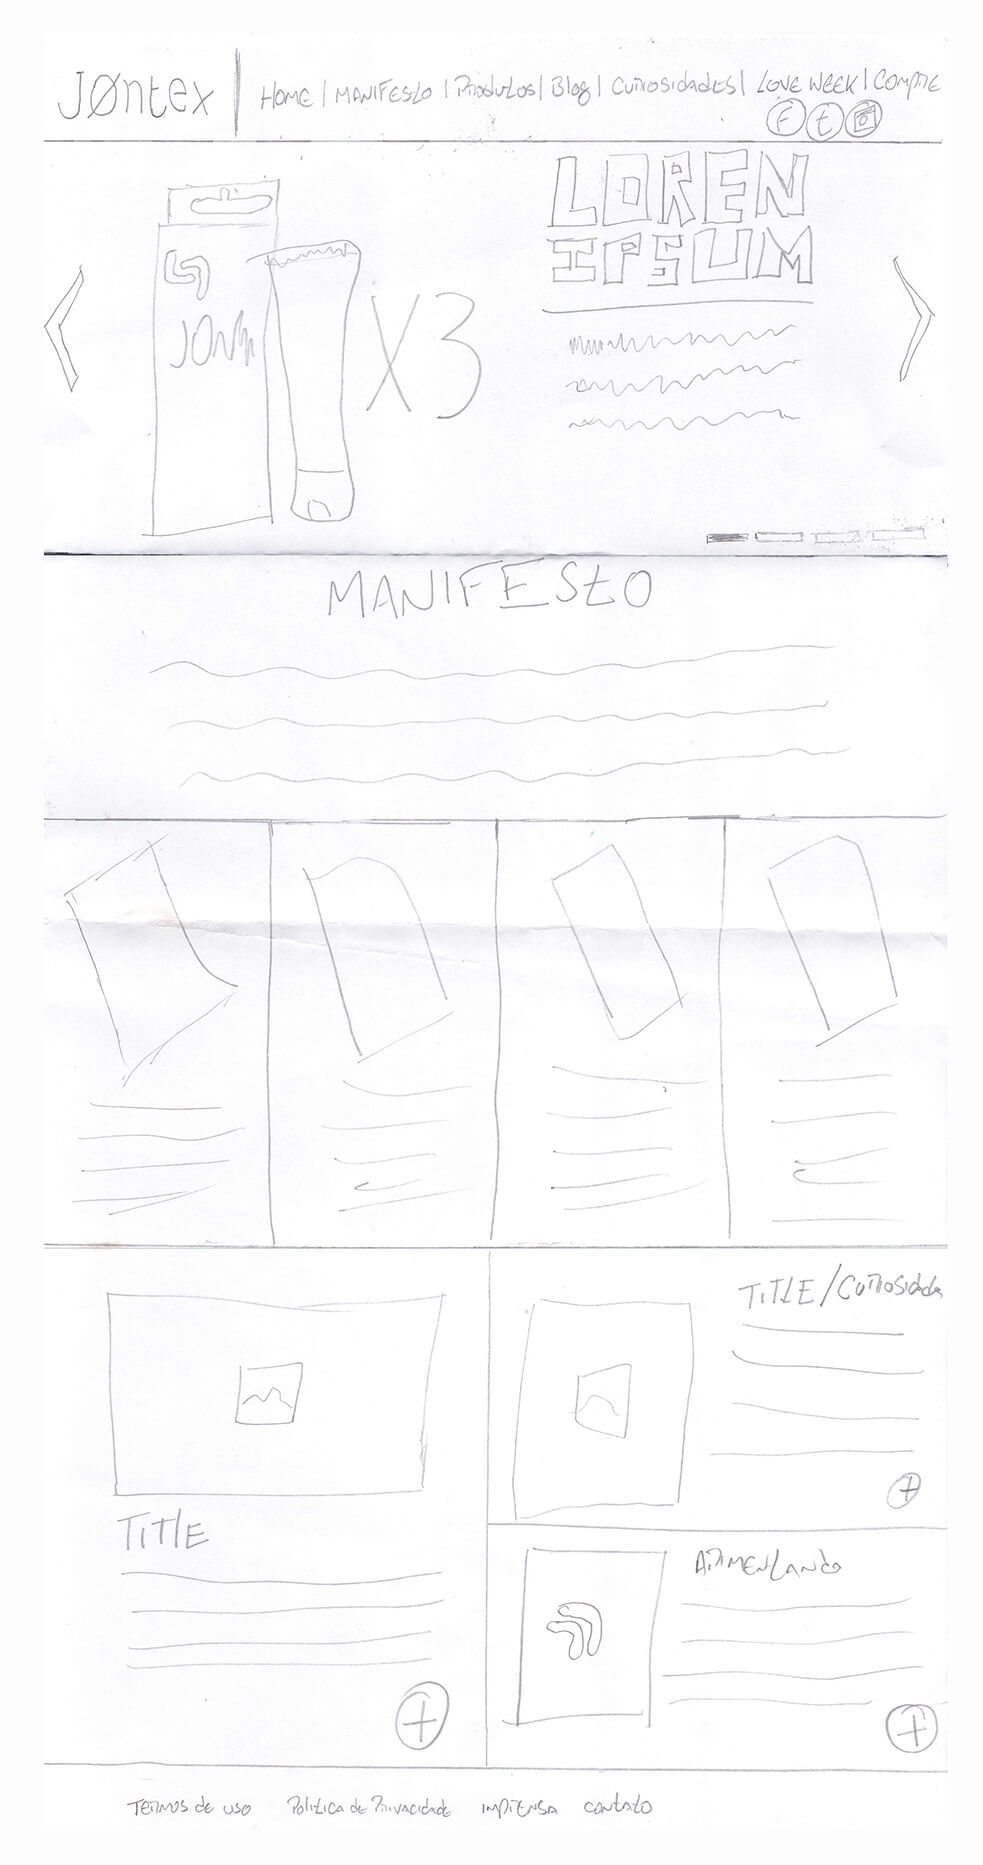 Jøntex
HOME | MANIFESTO | Produtos | Blog | Curiosidades | LOVE WEEK | COMPRE
f t
JON
X3
LOREN
IPSUM
MANIFESTO
TITLE / CURIOSIDADE
TITLE
APIMENTANDO
TERMOS DE USO Política de Privacidade IMPRENSA CONTATO